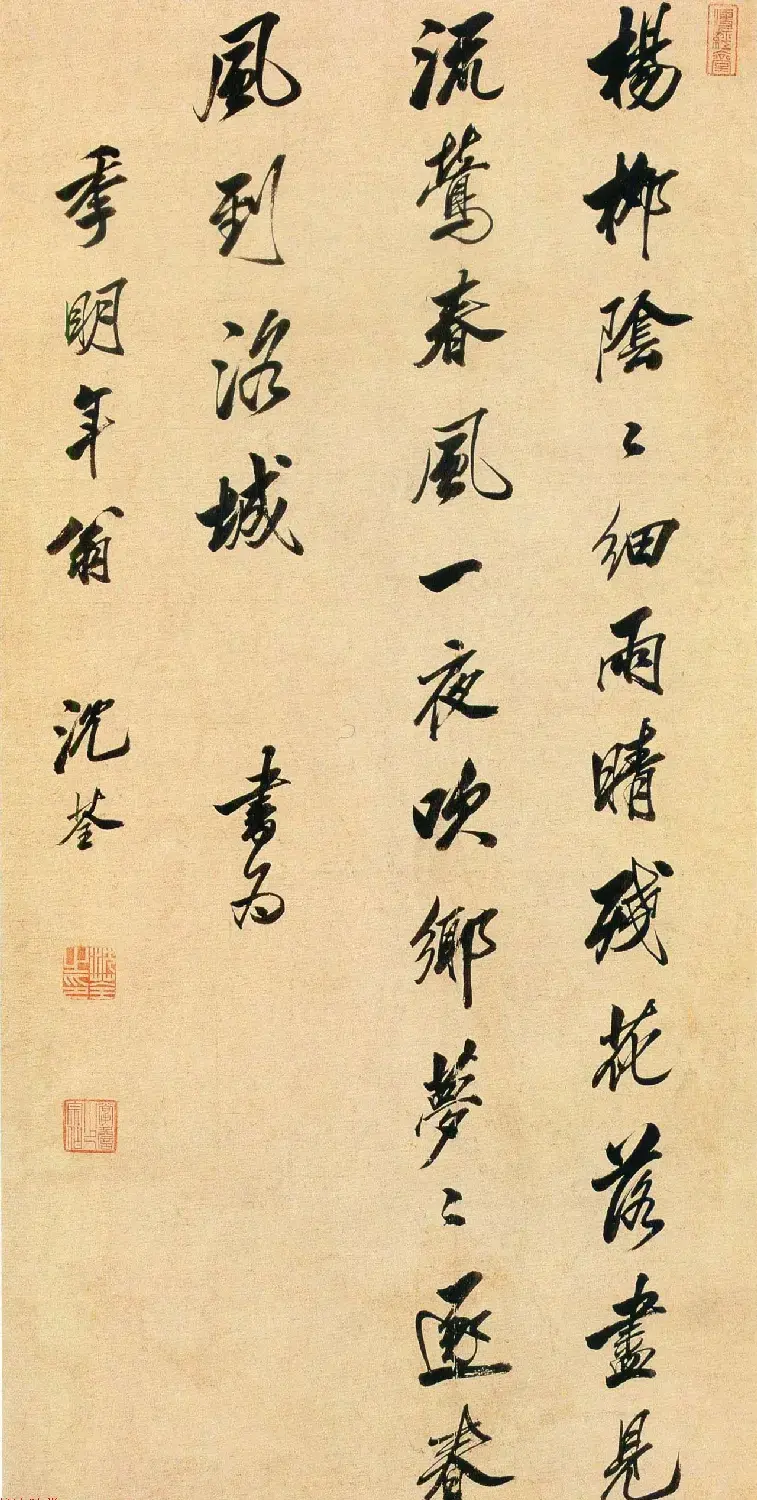 楊柳陰〻細雨晴殘花落盡見
流鶯春風一夜吹鄉夢〻逐春
風到洛城 書為
季明年翁 沈荃